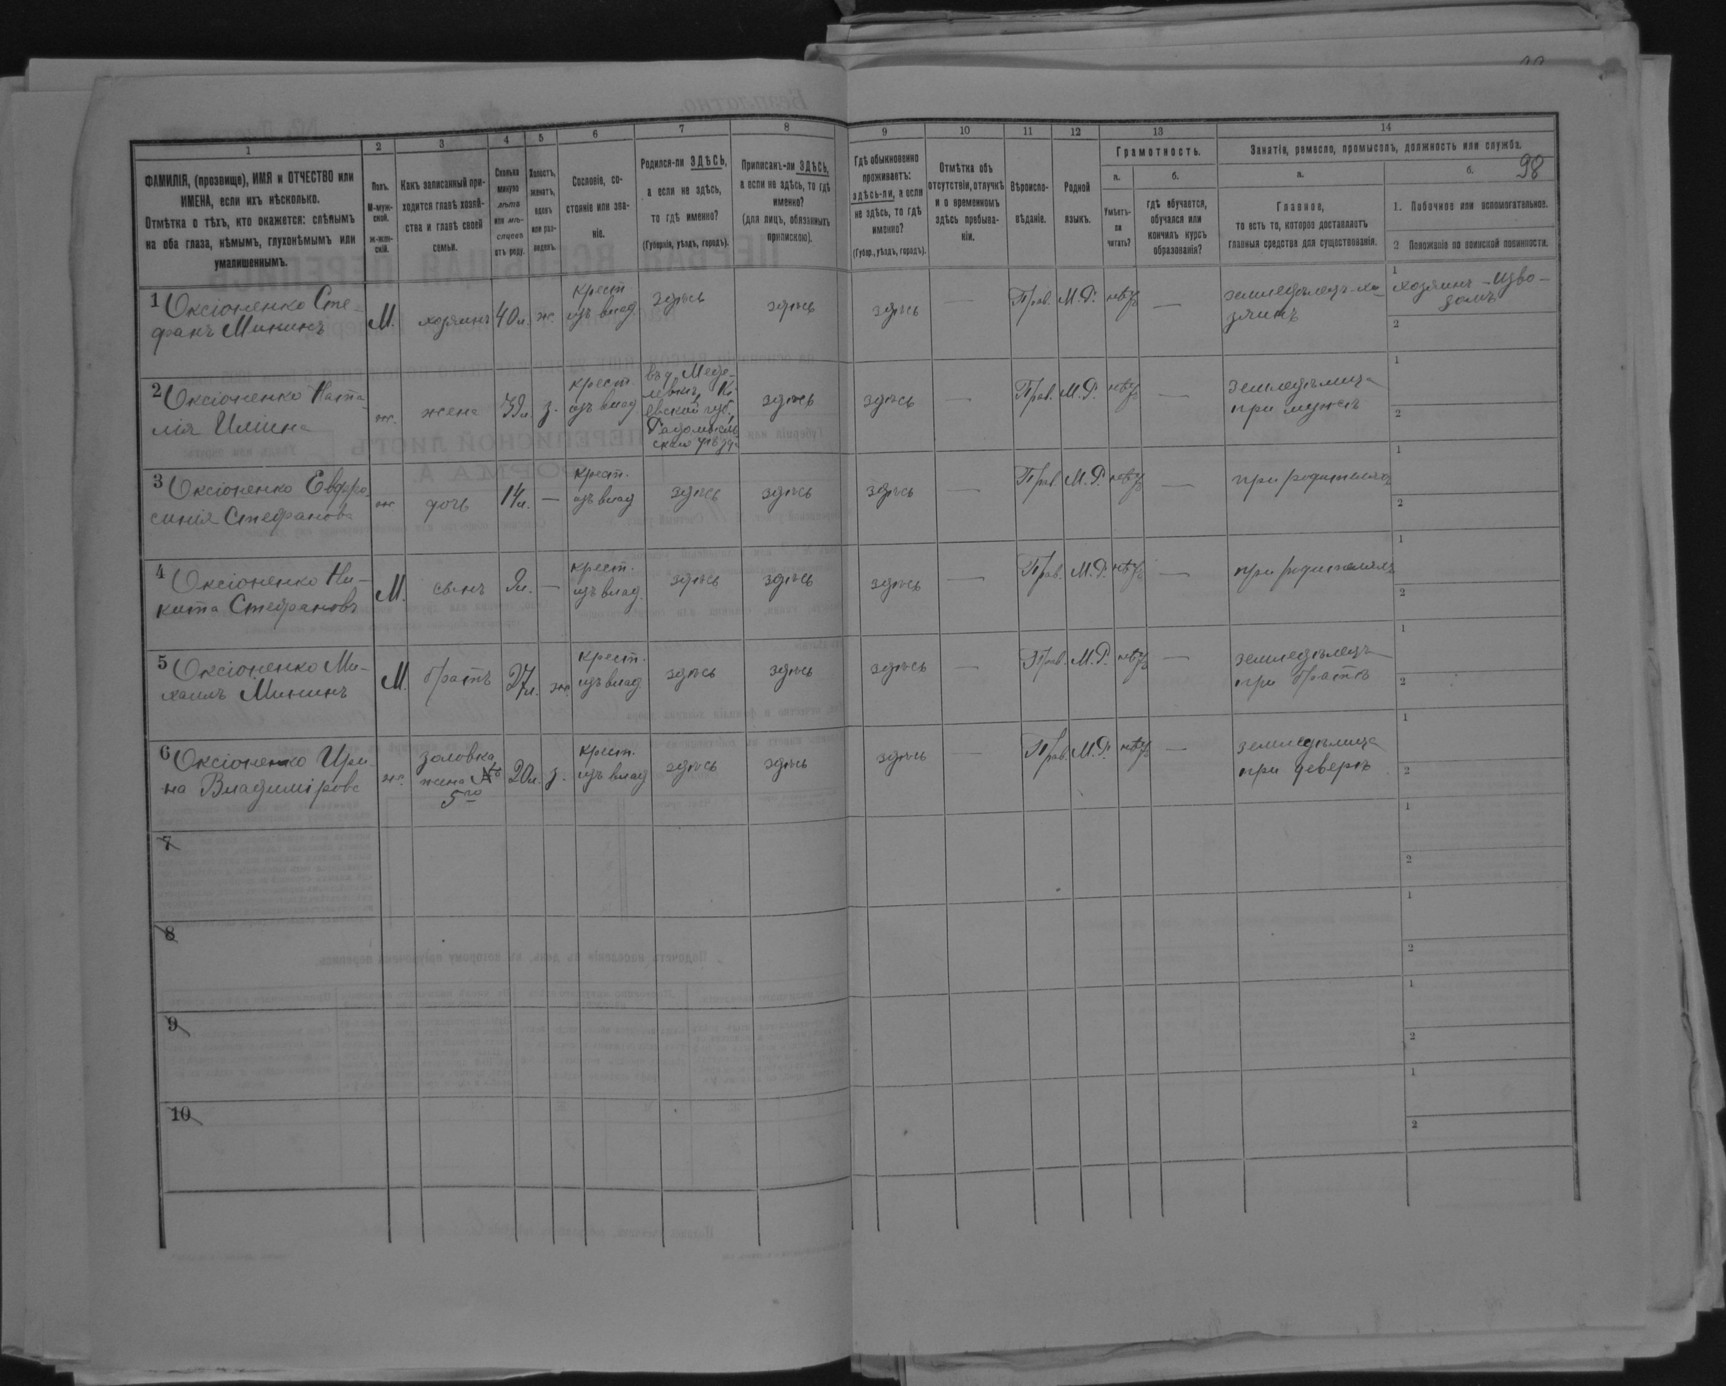 98
1 2 3 4 5 6 7 8 9 10 11 12 13 14
ФАМИЛІЯ, (прозвище), ИМЯ и ОТЧЕСТВО или
ИМЕНА, если ихъ нѣсколько.
Отмѣтка о тѣхъ, кто окажется: слѣпымъ
на оба глаза, нѣмымъ, глухонѣмымъ или
умалишеннымъ.
Полъ.
М-муж-
ской.
ж-жен-
скій.
Какъ записанный при-
ходится главѣ хозяй-
ства и главѣ своей
семьи.
Сколько
минуло
лѣтъ
или мѣ-
сяцевъ
отъ роду.
Холостъ,
женатъ,
вдовъ
или раз-
веденъ.
Сословіе, со-
стояніе или зва-
ніе.
Родился-ли ЗДѢСЬ,
а если не здѣсь,
то гдѣ именно?
(Губернія, уѣздъ, городъ).
Приписанъ-ли ЗДѢСЬ,
а если не здѣсь, то гдѣ
именно?
(для лицъ, обязанныхъ
припискою).
Гдѣ обыкновенно
проживаетъ:
здѣсь-ли, а если
не здѣсь, то гдѣ
именно?
(Губер., уѣздъ, городъ).
Отмѣтка объ
отсутствіи, отлучкѣ
и о временномъ
здѣсь пребыва-
ніи.
Вѣроиспо-
вѣданіе.
Родной
языкъ.
Грамотность.
а.
Умѣетъ-
ли
читать?
б.
гдѣ обучается,
обучался или
кончилъ курсъ
образованія?
Занятія, ремесло, промыселъ, должность или служба.
а.
Главное,
то есть то, которое доставляетъ
главныя средства для существованія.
б.
1. Побочное или вспомогательное.
2 Положеніе по воинской повинности.
1 Оксіоненко Сте-
фанъ Мининъ
М.
хозяинъ
40 л.
ж.
крест
изъ влад
здѣсь
здѣсь
здѣсь
—
Прав.
М.Р.
нѣтъ
—
земледѣлецъ хо-
зяинъ
1
хозяинъ - Изво-
зомъ
2
2 Оксіоненко Ната-
лія Ильина
ж.
жена
39 л.
з.
крест
изъ влад
Радомысль-
скаго уѣзда
здѣсь
здѣсь
—
Прав.
М.Р.
нѣтъ
—
земледѣлица
при мужѣ
1
2
3 Оксіоненко Евфро-
синія Стефанова
ж.
дочь
14 л.
—
крест.
изъ влад
здѣсь
здѣсь
здѣсь
—
Прав
М.Р.
нѣтъ
—
при родителяхъ
1
2
4 Оксіоненко Ни-
кита Стефановъ
М.
сынъ
—
крест.
изъ влад.
здѣсь
здѣсь
здѣсь
—
Прав.
М.Р.
нѣтъ
—
при родителяхъ
1
2
5 Оксіоненко Ми-
хаилъ Мининъ
М.
братъ
27 л.
ж.
крест.
изъ влад
здѣсь
здѣсь
здѣсь
—
Прав.
М.Р.
нѣтъ
—
земледѣлецъ
при братѣ
1
2
6 Оксіоненко Ири-
на Владимірова
ж.
золовка
жена №
5го
20 л.
з.
крест.
изъ влад
здѣсь
здѣсь
здѣсь
—
Прав.
М.Р.
нѣтъ
—
земледѣлица
при деверѣ
1
2
7
1
2
8
1
2
9
1
2
10
1
2